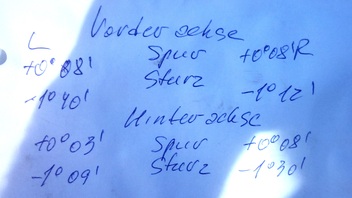 Vorderachse
L Spur R
+0°08' +0°08'
Sturz
-1°40' -1°12'
Hinterachse
+0°03' Spur +0°08'
-1°09' Sturz -1°30'